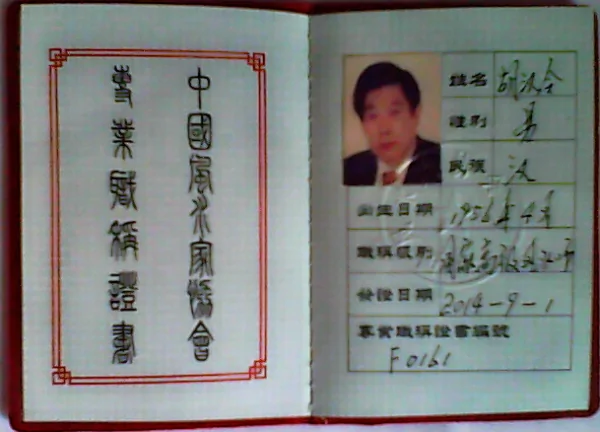 中國風水家協會
專業職稱證書
姓名 胡汉全
性别 男
民族 汉
出生日期 1956年4月
職稱級别 国家高级风水师
發證日期 2014-9-1
專業職稱證書編號
F0161